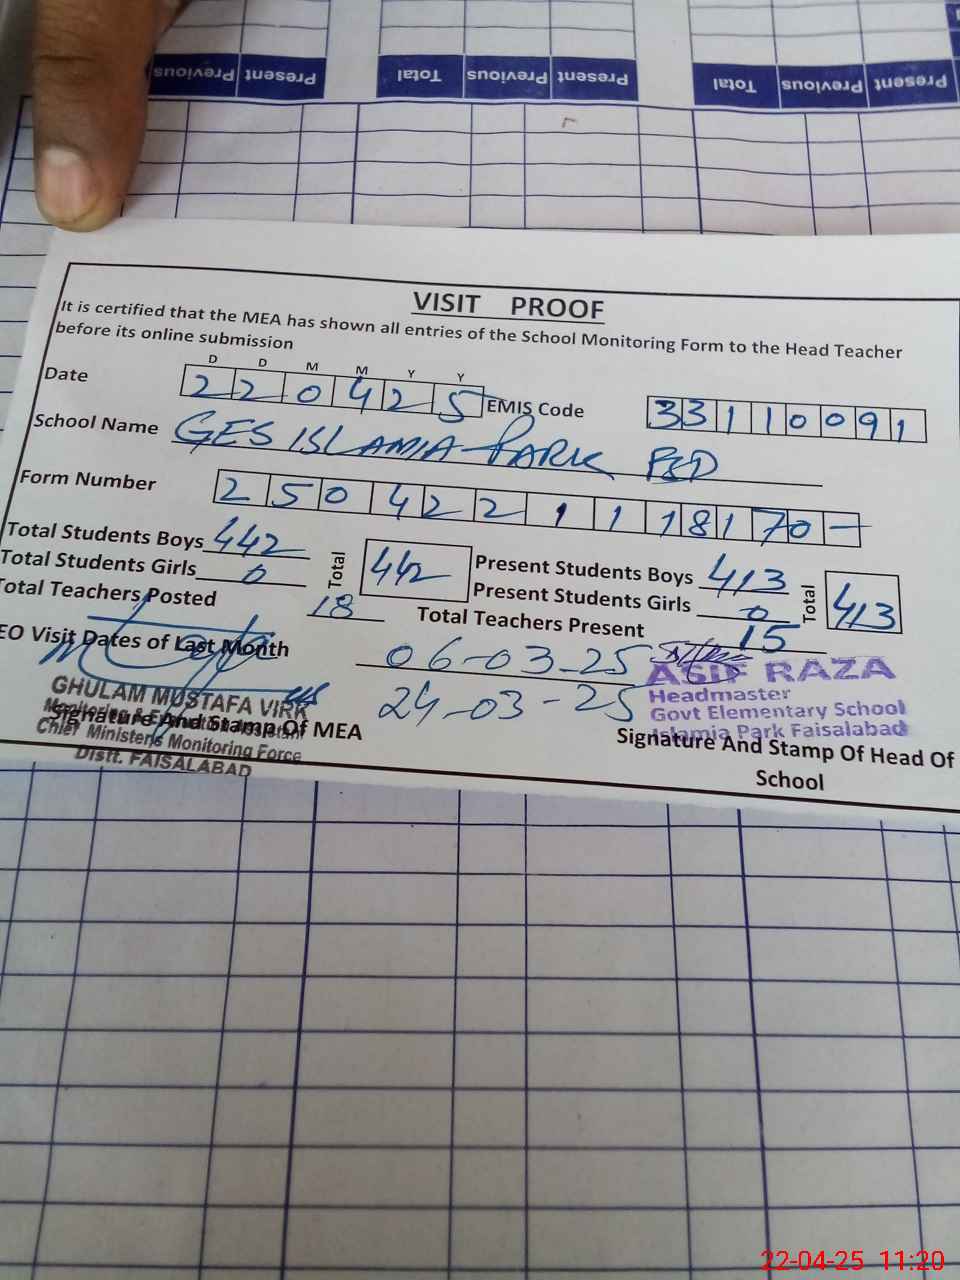 Previous Present
Total Previous Present
Total Previous Present
VISIT PROOF
It is certified that the MEA has shown all entries of the School Monitoring Form to the Head Teacher
before its online submission
D D M M Y Y
Date 2 2 0 4 2 5 EMIS Code 3 3 1 1 0 0 9 1
School Name GES ISLAMIA PARK FSD
Form Number 2 5 0 4 2 2 1 1 1 8 1 7 0 -
Total Students Boys 442 Total 442 Present Students Boys 413 Total 413
Total Students Girls 0 Present Students Girls 0
Total Teachers Posted 18 Total Teachers Present 15
EO Visit Dates of Last Month 06-03-25
24-03-25
ASIF RAZA
Headmaster
Govt Elementary School
Islamia Park Faisalabad
GHULAM MUSTAFA VIRK
Monitoring & Assistant
Chief Minister's Monitoring Force
Distt. FAISALABAD
Signature And Stamp Of MEA
Signature And Stamp Of Head Of
School
22-04-25 11:20